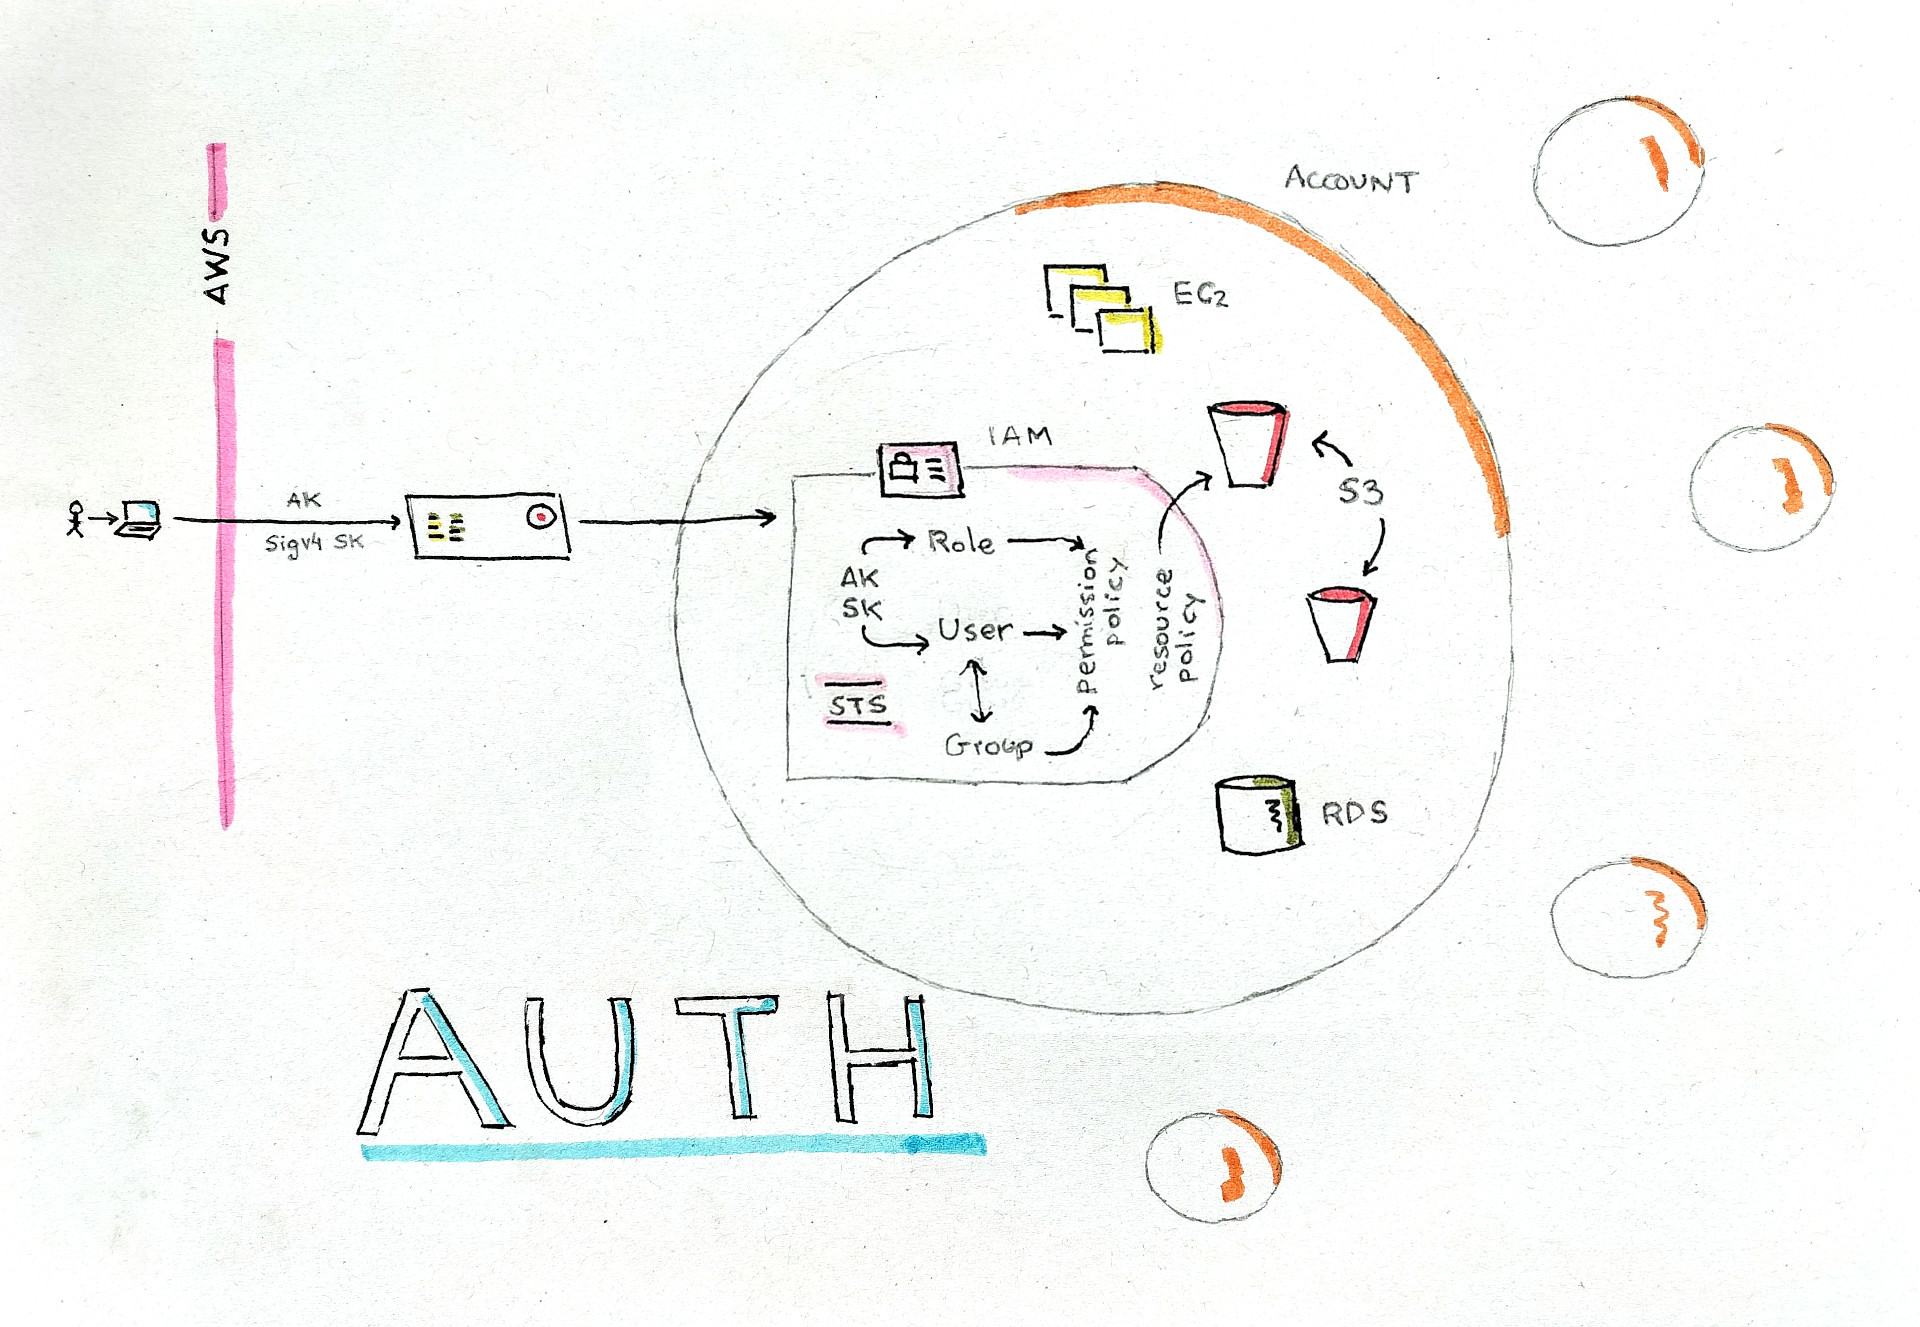 AWS
AK
Sigv4 SK
ACCOUNT
EC2
IAM
S3
Role
AK
SK
User
STS
Group
Permission
policy
resource
policy
RDS
AUTH